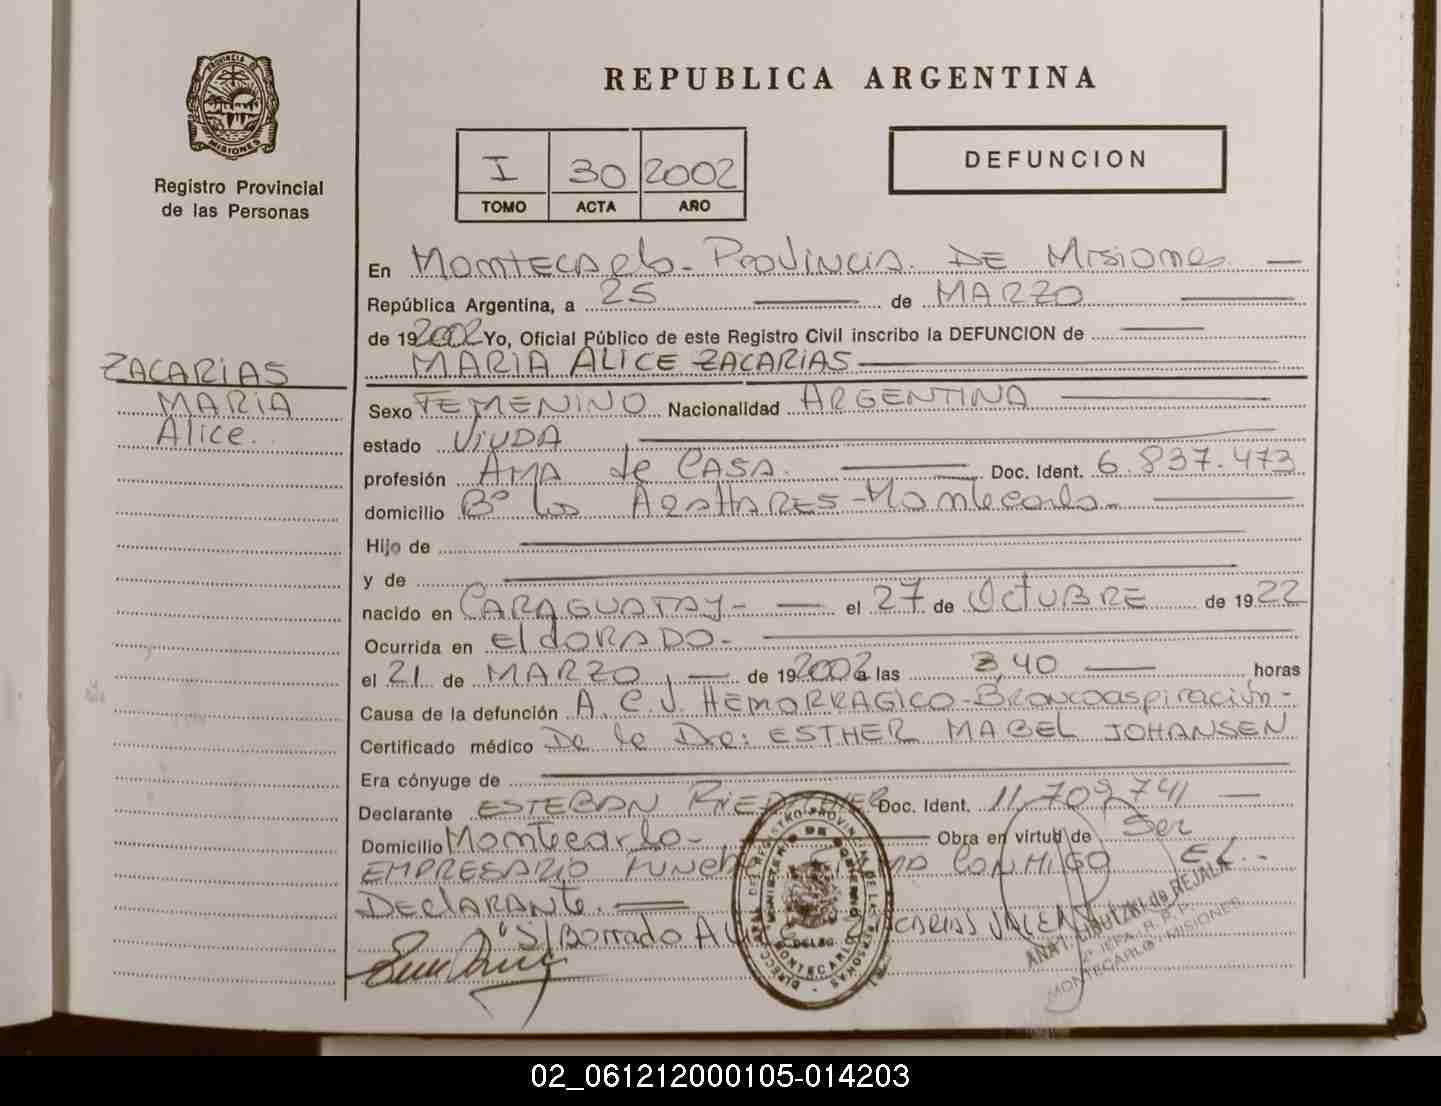 PROVINCIA DE
MISIONES
Registro Provincial
de las Personas
REPUBLICA ARGENTINA
I 30 2002
TOMO ACTA AÑO
DEFUNCION
En Montecarlo - Provincia DE Misiones
República Argentina, a 25 de MARZO
de 192002 Yo, Oficial Público de este Registro Civil inscribo la DEFUNCION de
MARIA ALICE ZACARIAS
ZACARIAS
MARIA
Alice.
Sexo FEMENINO Nacionalidad ARGENTINA
estado VIUDA
profesión AMA de CASA. Doc. Ident. 6.837.473
domicilio Bº los AZAHARES - Montecarlo -
Hijo de
y de
nacido en CARAGUATAY - el 27 de OCTUBRE de 1922
Ocurrida en ElDORADO -
el 21 de MARZO de 192002 a las 3 40 horas
Causa de la defunción A.C.V. HEMORRAGICO - Broncoaspiración -
Certificado médico De la Dra: ESTHER MABEL JOHANSEN
Era cónyuge de
Declarante ESTEBAN Doc. Ident. 11.709.741
Domicilio Montecarlo - Obra en virtud de Ser
EMPRESARIO CONMIGO EL
DEClARANTE.
S/Borrado VALE
MONTECARLO - MISIONES
02_061212000105-014203